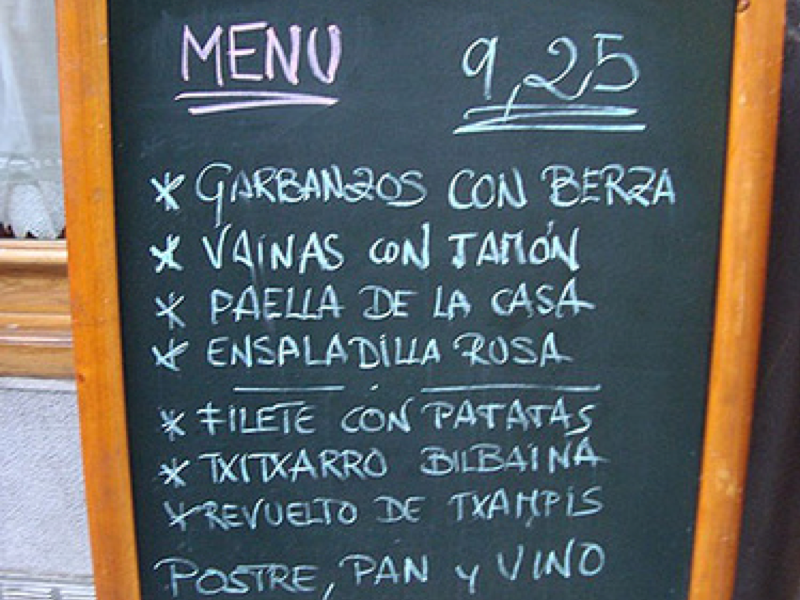 MENU 9,25
* GARBANZOS CON BERZA
* VAINAS CON JAMÓN
* PAELLA DE LA CASA
* ENSALADILLA ROSA
* FILETE CON PATATAS
* TXITXARRO BILBAINA
* REVUELTO DE TXAMPIS
POSTRE, PAN Y VINO